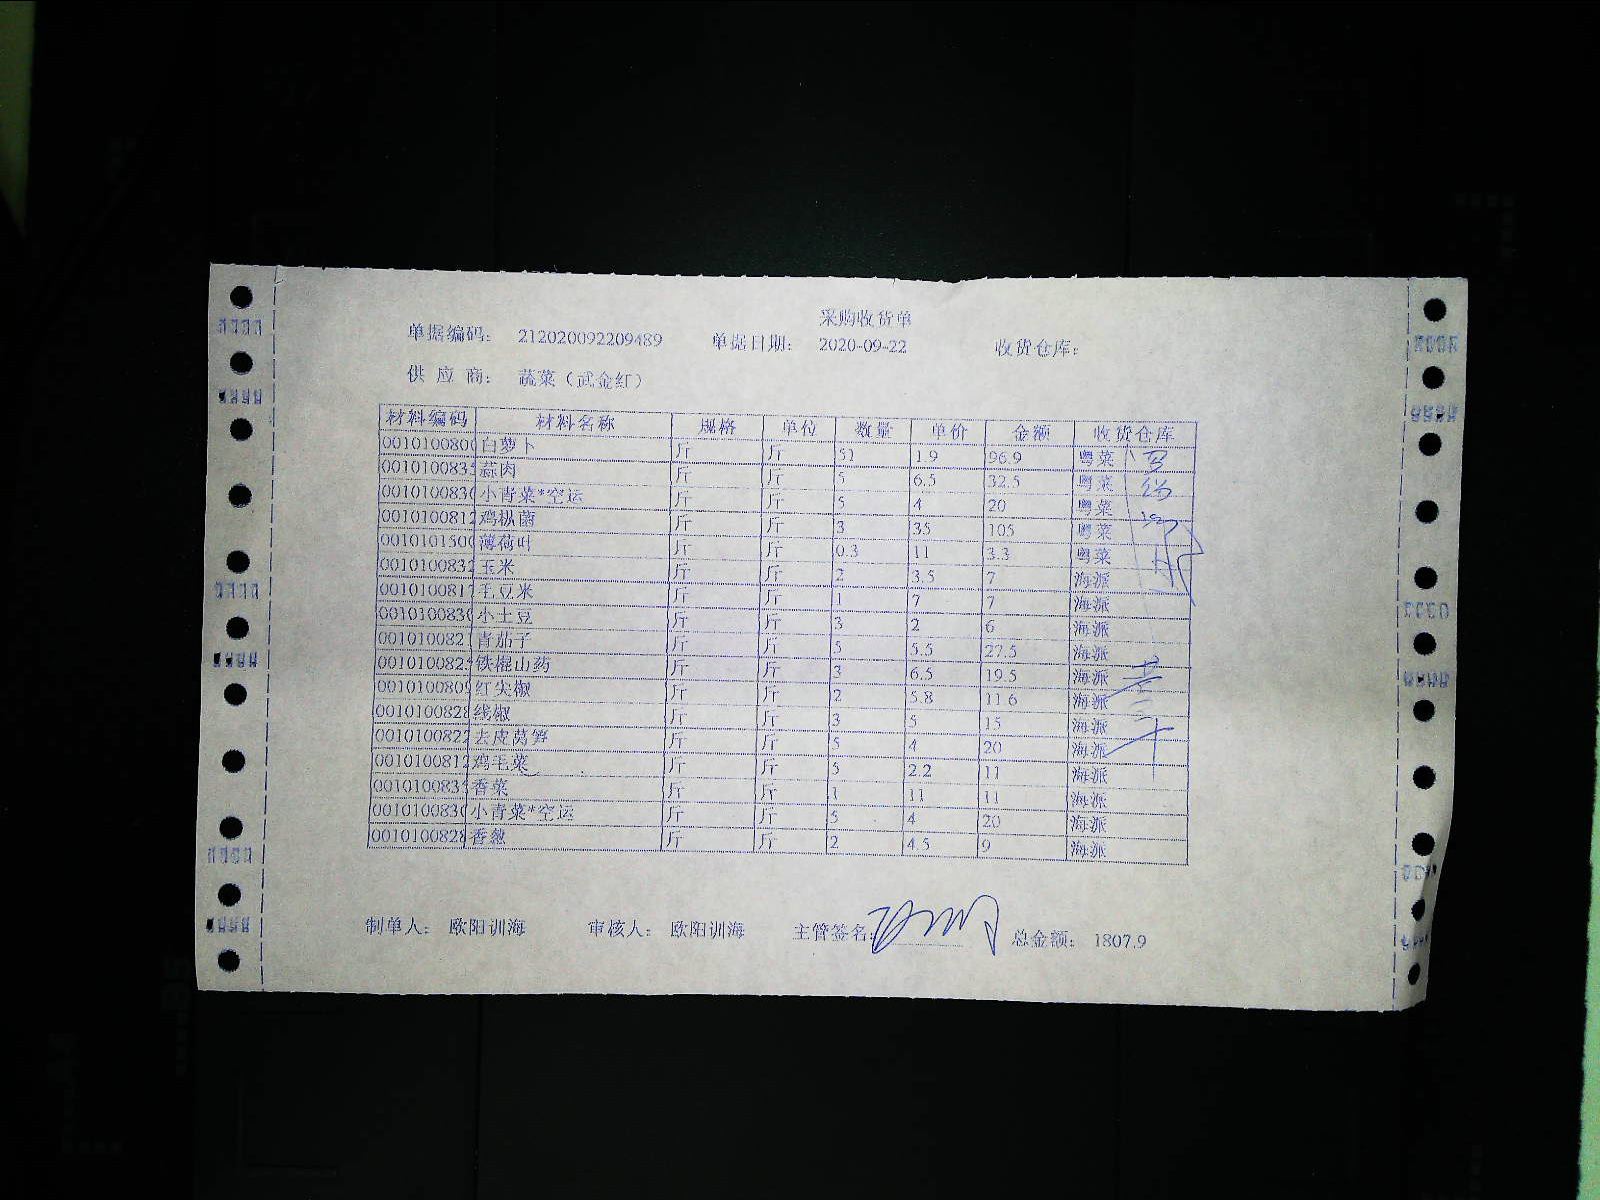 采购收货单
单据编码: 212020092209489 单据日期: 2020-09-22 收货仓库:
供 应 商: 蔬菜（武金红）
材料编码 材料名称 规格 单位 数量 单价 金额 收货仓库
0010100800 白萝卜 斤 斤 51 1.9 96.9 粤菜
001010083 蒜肉 斤 斤 5 6.5 32.5 粤菜
001010083 小青菜*空运 斤 斤 5 4 20 粤菜
0010100812 鸡枞菌 斤 斤 3 35 105 粤菜
0010101500 薄荷叶 斤 斤 0.3 11 3.3 粤菜
0010100832 玉米 斤 斤 2 3.5 7 海派
0010100817 毛豆米 斤 斤 1 7 7 海派
001010083 小土豆 斤 斤 3 2 6 海派
0010100821 青茄子 斤 斤 5 5.5 27.5 海派
001010082 铁棍山药 斤 斤 3 6.5 19.5 海派
0010100809 红尖椒 斤 斤 2 5.8 11.6 海派
0010100828 线椒 斤 斤 3 5 15 海派
0010100822 去皮莴笋 斤 斤 5 4 20 海派
0010100812 鸡毛菜 斤 斤 5 2.2 11 海派
001010083 香菜 斤 斤 1 11 11 海派
001010083 小青菜*空运 斤 斤 5 4 20 海派
0010100828 香葱 斤 斤 2 4.5 9 海派
制单人: 欧阳训海 审核人: 欧阳训海 主管签名: 总金额: 1807.9